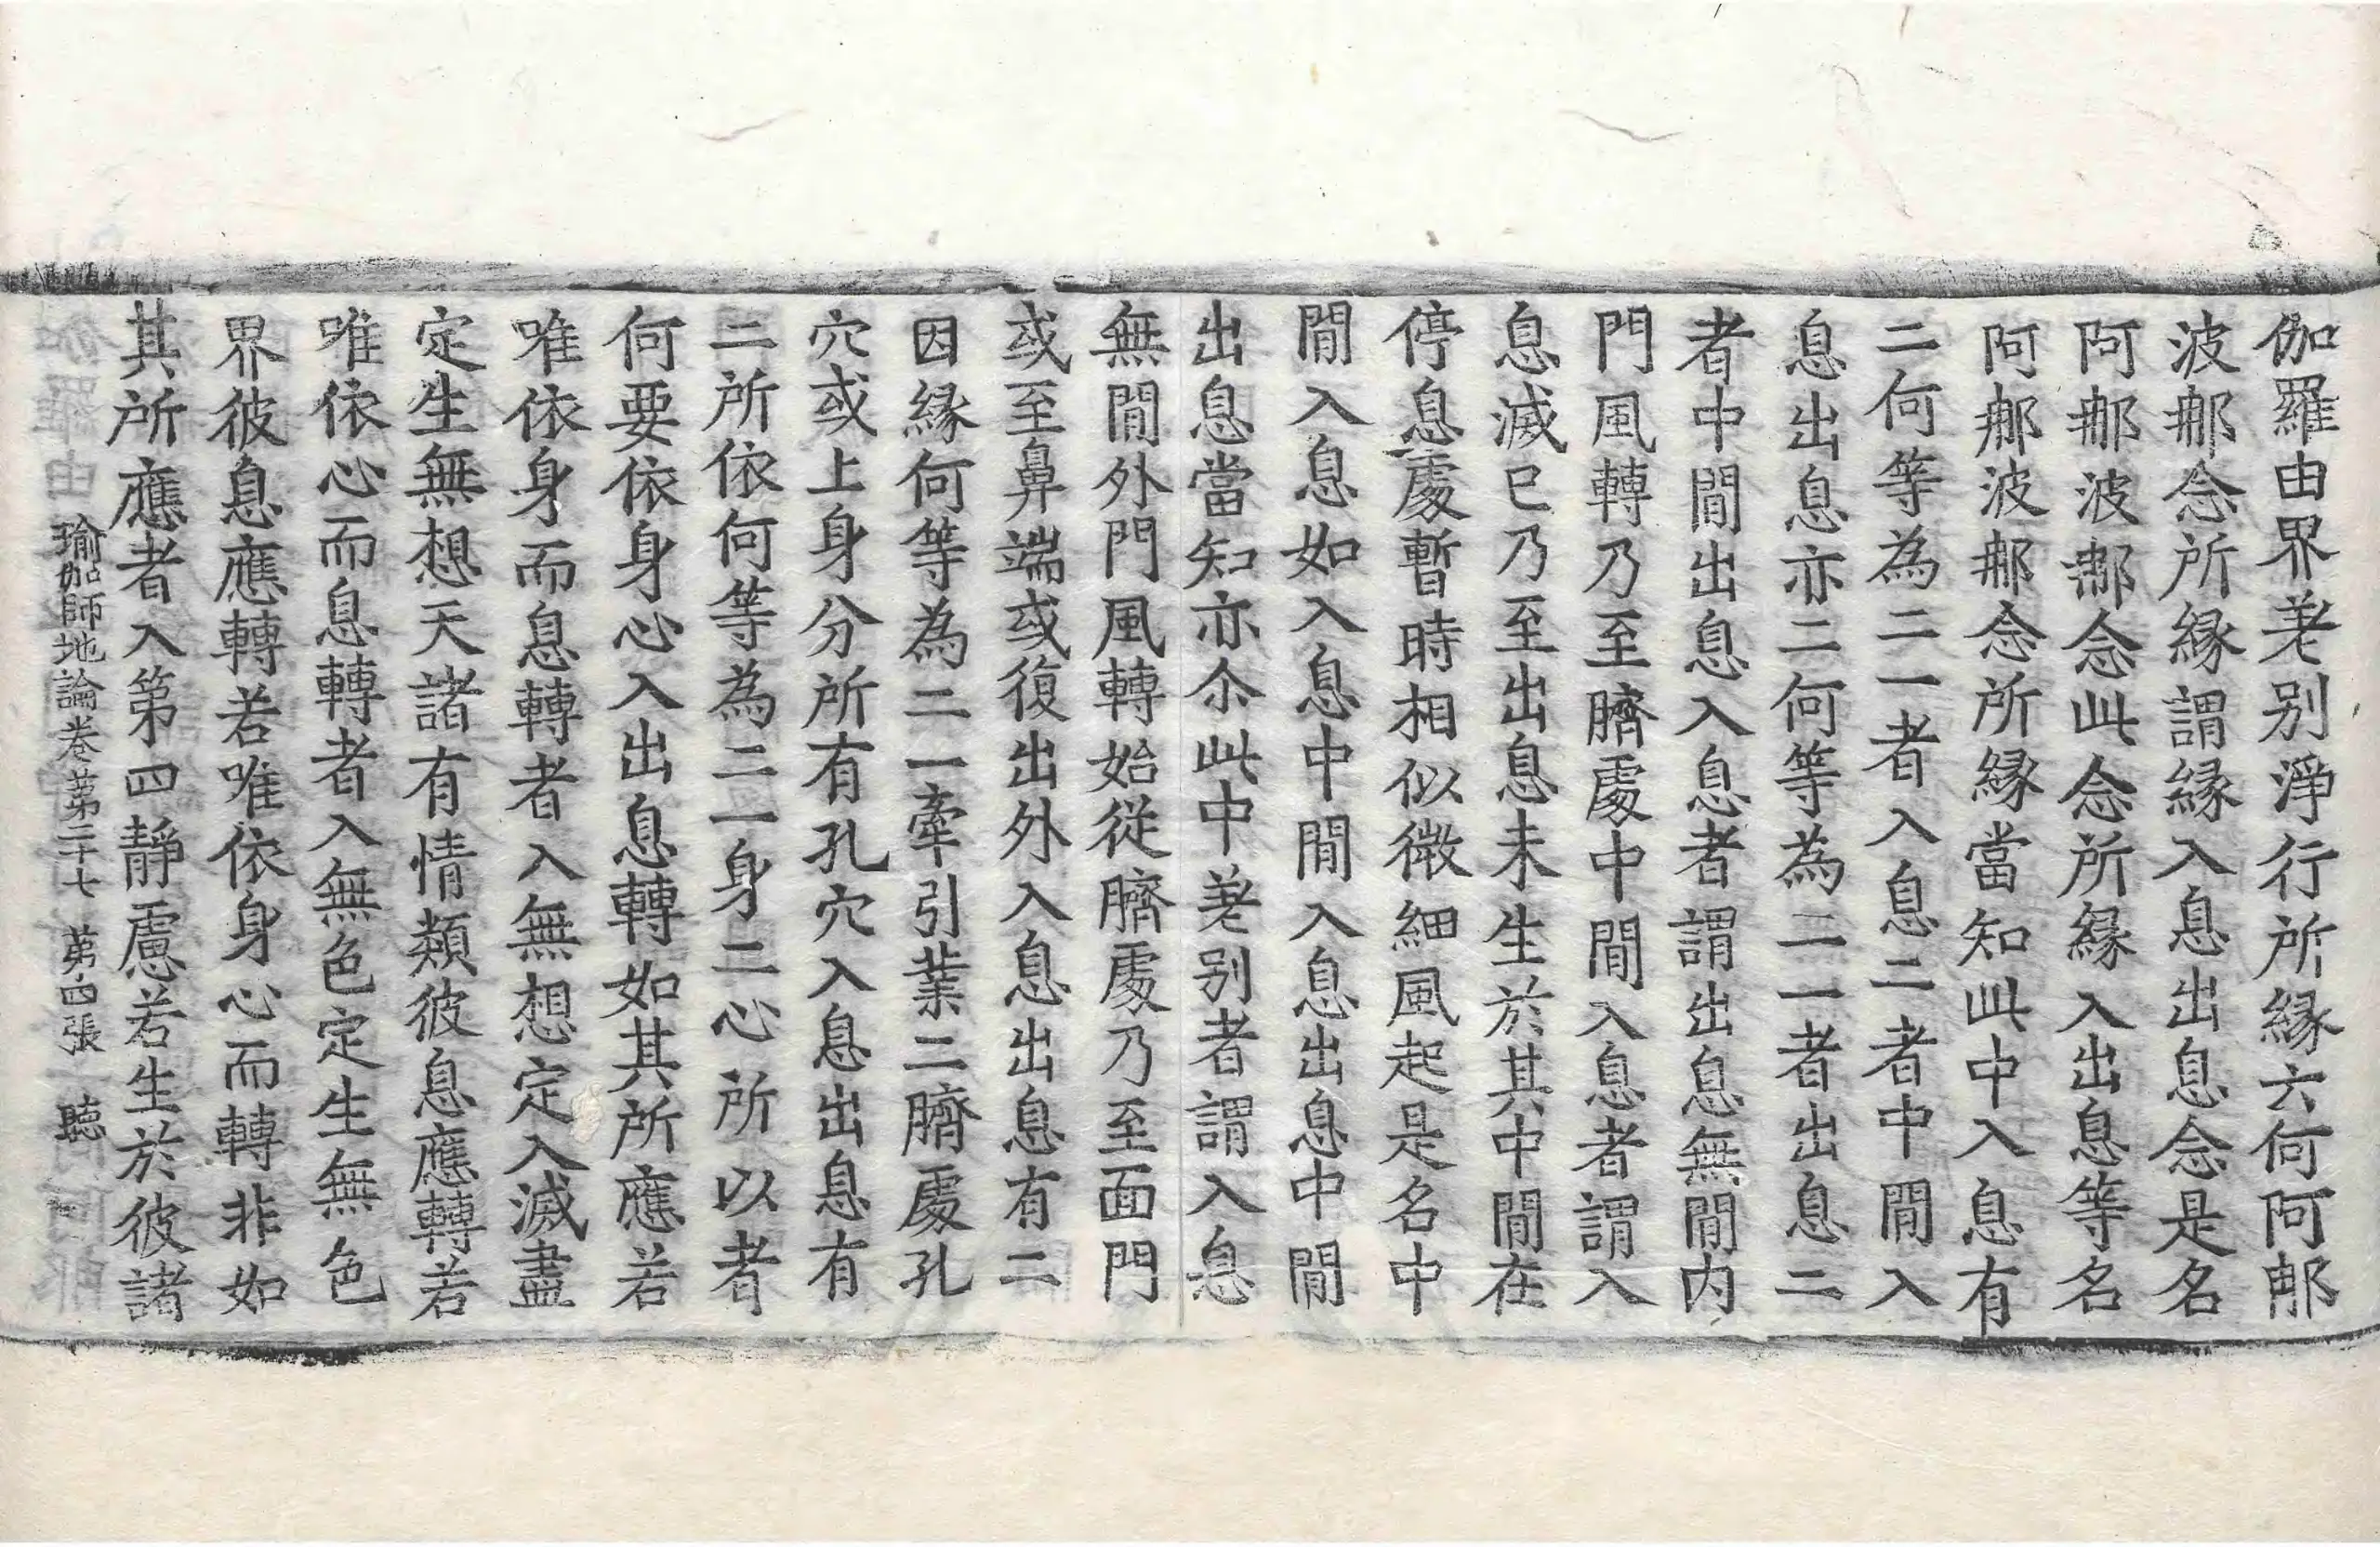 伽羅由界差别淨行所縁六何阿那
波那念所縁謂縁入息出息念是名
阿那波那念此念所縁入出息等名
阿那波那念所縁當知此中入息有
二何等為二一者入息二者中間入
息出息亦二何等為二一者出息二
者中間出息入息者謂出息無間内
門風轉乃至臍處中間入息者謂入
息滅已乃至出息未生於其中間在
停息處暫時相似微細風起是名中
間入息如入息中間入息出息中間
出息當知亦尒此中差别者謂入息
無間外門風轉始從臍處乃至面門
或至鼻端或復出外入息出息有二
因縁何等為二一牽引業二臍處孔
穴或上身分所有孔穴入息出息有
二所依何等為二一身二心所以者
何要依身心入出息轉如其所應若
唯依身而息轉者入無想定入滅盡
定生無想天諸有情類彼息應轉若
唯依心而息轉者入無色定生無色
界彼息應轉若唯依身心而轉非如
其所應者入第四靜慮若生於彼諸
瑜伽師地論卷第二十七 第四張 聽